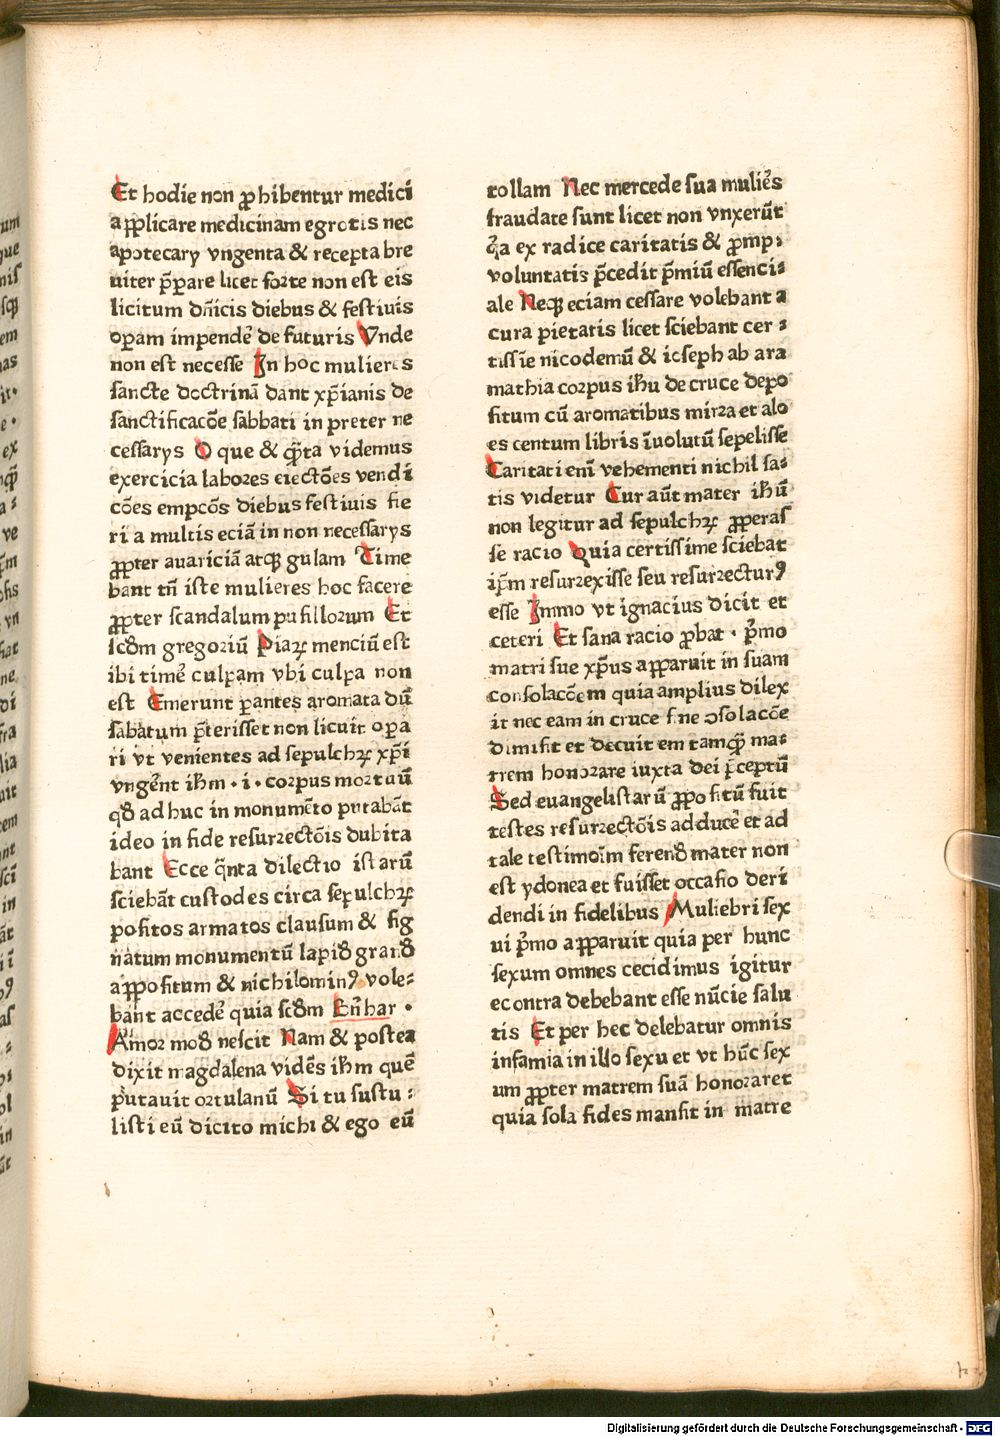 Et hodie non ꝓhibentur medici
aꝑplicare medicinam egrotis nec
apotecary vngenta & recepta bre
uiter p̄pare licet forte non est eis
licitum dn̄icis diebus & festiuis
opam impendē de futuris Vnde
non est necesse In hoc mulieres
sancte doctrinā dant xp̄ianis de
sanctificacōe sabbati in preter ne
cessarys O que & q̄ta videmus
exercicia labores eiectōes vendi
cōes empcōs diebus festiuis fie
ri a multis eciā in non necessarys
ꝓpter auariciā atqꝫ gulam Time
bant tn̄ iste mulieres hoc facere
ꝓpter scandalum pusillorum Et
scd̄m gregoriū Piaꝝ menciū est
ibi timē culpam vbi culpa non
est Emerunt p̄antes aromata dū
sabatum p̄terisset non licuit opa
ri vt venientes ad sepulchꝝ xp̄i
vngēnt ih̄m · i · corpus mortuū
qd̄ ad huc in monumēto putabāt
ideo in fide resurrectōis dubita
bant Ecce q̄nta dilectio istarū
sciebāt custodes circa sepulchꝝ
positos armatos clausum & sig
natum monumentū lapid̄ grand̄
aꝑpositum & nichilominꝰ vole⸗
bant accedē quia scd̄m Bn̄har ·
Amor mod̄ nescit Nam & postea
dixit magdalena vidēs ih̄m quē
putauit ortulanū Si tu sustu⸗
listi eū dicito michi & ego eū
tollam Nec mercede sua muliēs
fraudate sunt licet non vnxerūt
q̄a ex radice caritatis & ꝓmp⸗
voluntatis p̄cedit p̄miū essenci⸗
ale Neqꝫ eciam cessare volebant a
cura pietatis licet sciebant cer⸗
tissie nicodemū & ioseph ab ara
mathia corpus ih̄u de cruce depo
situm cū aromatibus mirra et alo
es centum libris īuolutū sepelisse
Caritati enī vehementi nichil sa⸗
tis videtur Cur aūt mater ih̄ū
non legitur ad sepulchꝝ ꝓperas
se racio Quia certissime sciebat
ip̄m resurrexisse seu resurrecturꝰ
esse Inmo vt ignacius dicit et
ceteri Et sana racio ꝓbat · p̄mo
matri sue xp̄us apparuit in suam
consolacōem quia amplius dilex
it nec eam in cruce sine ↄsolacōe
dimisit et decuit em tamqꝫ ma⸗
trem honorare iuxta dei p̄ceptū
Sed euangelistarū ꝓpositū fuit
testes resurrectōis adducē et ad
tale testimoīm ferend̄ mater non
est ydonea et fuisset occasio deri
dendi in fidelibus Muliebri sex
ui p̄mo apparuit quia per hunc
sexum omnes cecidimus igitur
econtra debebant esse nūcie salu
tis Et per hec delebatur omnis
infamia in illo sexu et vt hūc sex
um ꝓpter matrem suā honoraret
quia sola fides mansit in matre
Digitalisierung gefördert durch die Deutsche Forschungsgemeinschaft - DFG